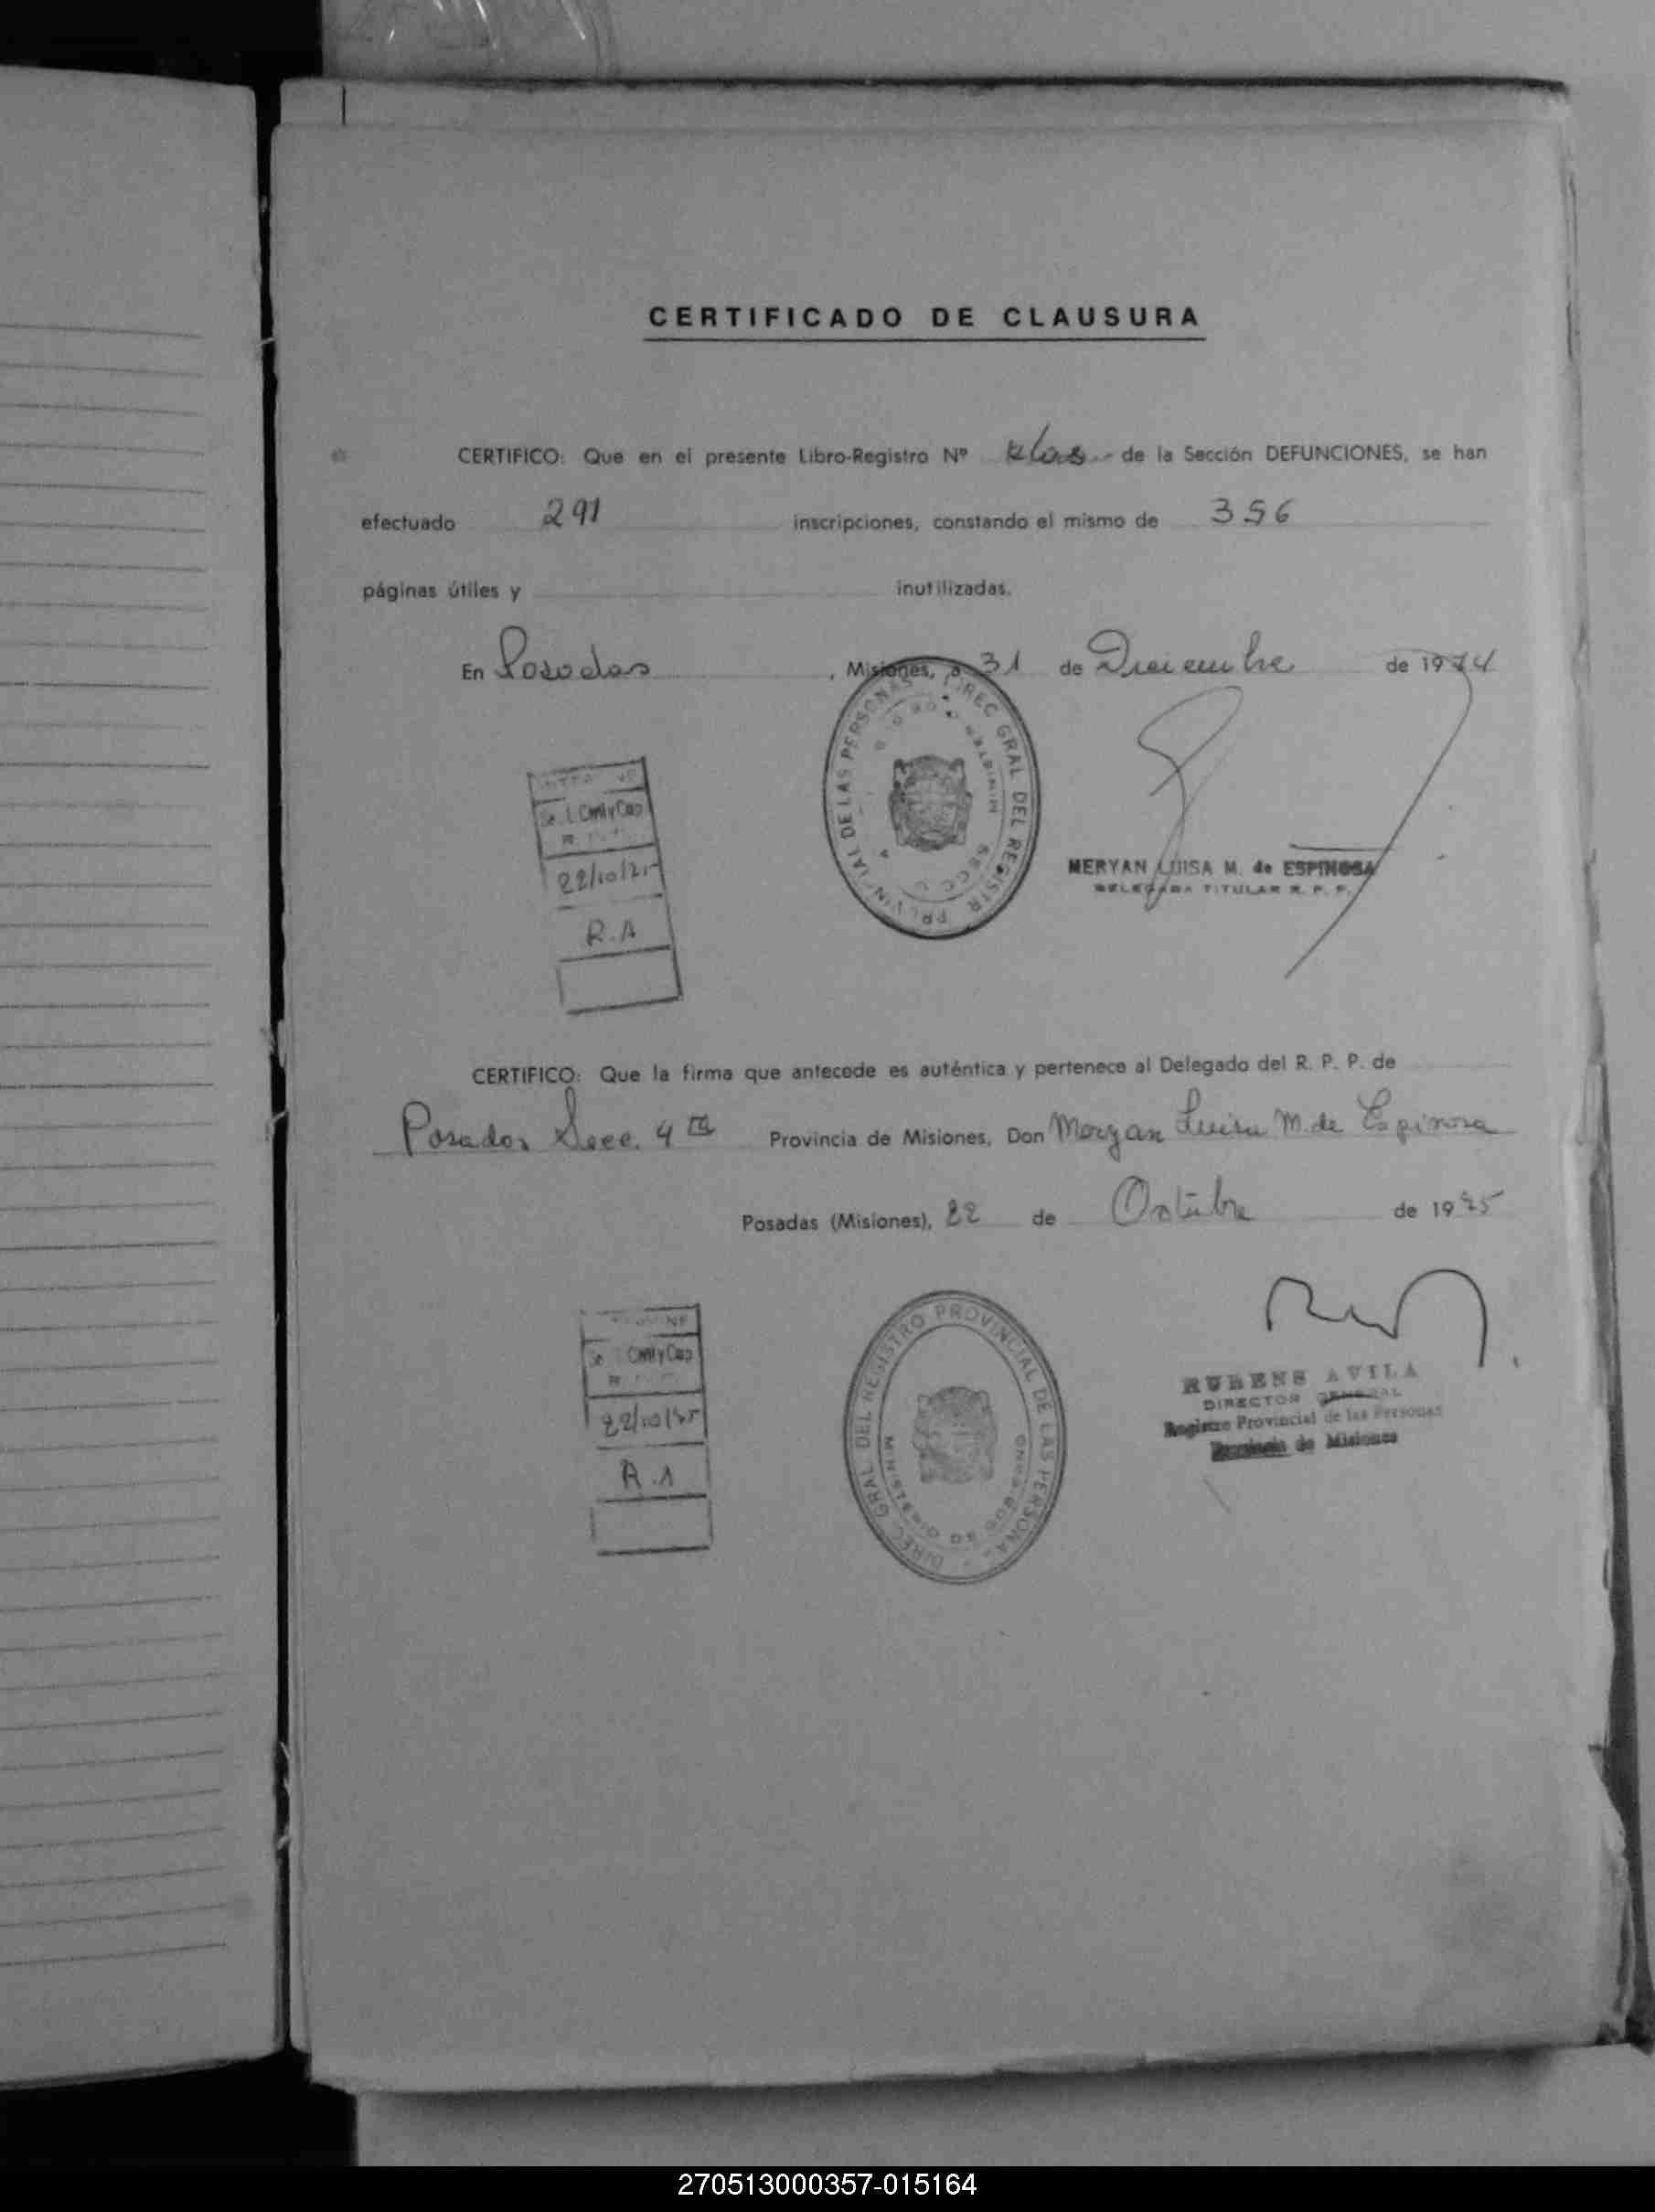 CERTIFICADO DE CLAUSURA
CERTIFICO: Que en el presente Libro-Registro Nº de la Sección DEFUNCIONES, se han
efectuado 291 inscripciones, constando el mismo de 356
páginas útiles y inutilizadas.
En Posadas , Misiones, a 31 de Diciembre de 1974
DIREC GRAL DEL REGISTR PROVINCIAL DE LAS PERSONAS
MERYAN LUISA M. de ESPINOSA
DELEGADA TITULAR R. P. P.
22/10/75
R.A
CERTIFICO: Que la firma que antecede es auténtica y pertenece al Delegado del R. P. P. de
Posadas Secc. 4ta Provincia de Misiones, Don Meryan Luisa M. de Espinosa
Posadas (Misiones), 22 de Octubre de 1975
DIREC GRAL DEL REGISTRO PROVINCIAL DE LAS PERSONAS
22/10/75
R.A
RUBENS AVILA
DIRECTOR GENERAL
Registro Provincial de las Personas
Provincia de Misiones
270513000357-015164